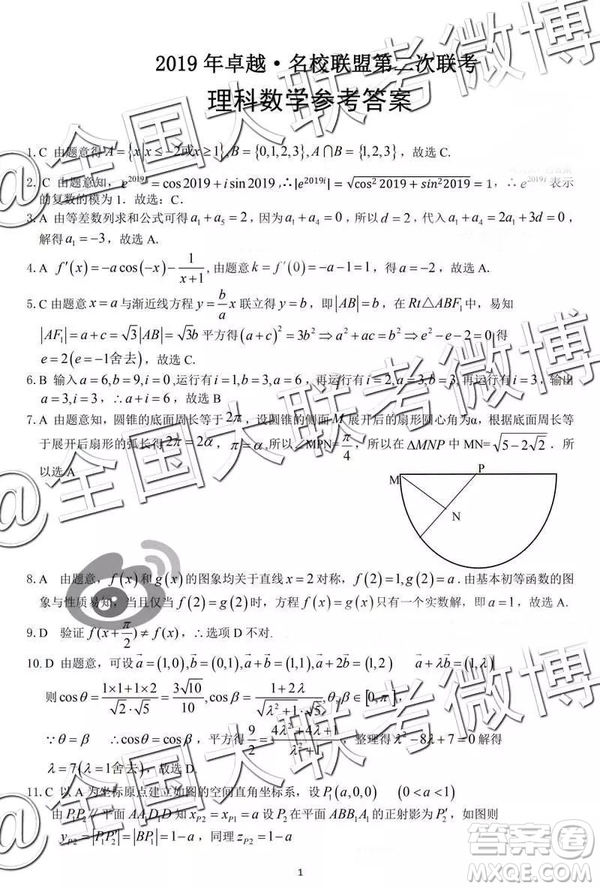 2019 年卓越·名校联盟第二次联考
理科数学参考答案
1. C 由题意得 A={x|x≤-2或x≥1}, B={0,1,2,3}, A∩B={1,2,3}, 故选 C.
2. C 由题意知, e^{2019i}=cos2019+i sin2019, ∴|e^{2019i}|=√(cos²2019+sin²2019)=1, ∴e^{2019i} 表示
的复数的模为 1. 故选: C.
3. A 由等差数列求和公式可得 a₁+a₅=2, 因为 所以 d=2, 代入 a₁+a₄=2a₁+3d=0,
解得 a₁=-3, 故选 A.
4. A f′(x)=-a cos(-x)-1/(x+1), 由题意 k=f′(0)=-a-1=1, 得, 故选 A.
5. C 由题意 x=a 与渐近线方程 y=(b/a)x 联立得, 即 |AB|=b, 在 Rt△ABF₁ 中, 易知
|AF₁|=a+c=√3|AB|=√3b 平方得 (a+c)²=3b²⇒a²+ac=b²⇒e²-e-2=0 得
e=2(e=-1舍去), 故选 C.
6. B 输入 a=6,b=9,i=0, 运行 i=1,b=3,a=6, 再运行 i=2, 再运行 i=3, 输出
a=3,i=3, ∴a+i=6, 故选 B
7. A 由题意知, 圆锥的底面周长等于 2π, 设圆锥的侧面 展开后的扇形圆心角为α, 根据底面周长等
于展开后扇形的弧长得 2π=2α, =π=α, 所以∠MPN=π/4, 所以在 ΔMNP 中 MN=√(5-2√2). 所
以选 A
M
P
N
8. A 由题意, f(x) 和 g(x) 的图象均关于直线 x=2 对称, f(2)=1,g(2)=a. 由基本初等函数的图
象与性质易知, 当且仅当 f(2)=g(2) 时, 方程 f(x)=g(x) 只有一个实数解, 即 a=1, 故选 A.
9. D 验证 f(x+π/2)≠f(x), ∴选项 D 不对.
10. D 由题意, 可设 a=(1,0),b=(0,1), a+b=(1,1), a+2b=(1,2) =(1,λ)
则 cosθ=(1×1+1×2)/(√2·√5)=3√10/10, =(1+2λ)/(√(λ²+1)·√5), θ,β∈[0,π],
∵θ=β ∴cosθ=cosβ, 平方得 9/2=(4λ²+4λ+1)/(λ²+1) 整理得 λ²-8λ+7=0 解得
λ=7(λ=1舍去), 故选 D.
11. C 以 A 为坐标原点建立如图的空间直角坐标系, 设 P₁(a,0,0) (0<a<1)
由 P₁P₂∥平面 AA₁D₁D 知 x_{P2}=x_{P1}=a 设 P₂ 在平面 ABB₁A₁ 的正射影为 P₂′, 如图则
y_{P2}=|P₁P₂′|=|BP₁|=1-a, 同理 z_{P2}=1-a
1
@全国大联考微博
答案圈